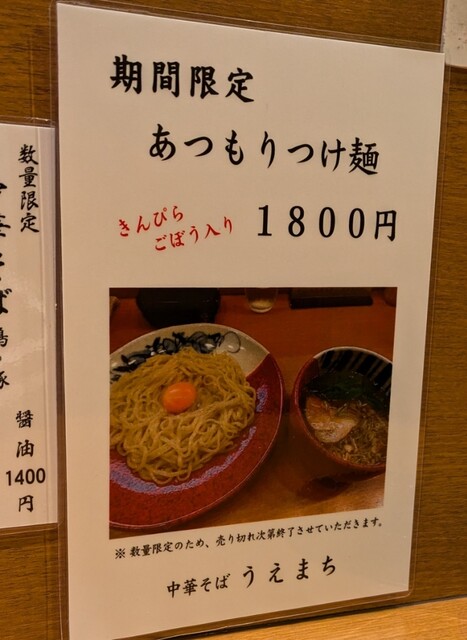 期間限定
あつもりつけ麺
きんぴら
ごぼう入り
1800円
※ 数量限定のため、売り切れ次第終了させていただきます。
中華そば うえまち
数量限定
そば
醤油
1400
円